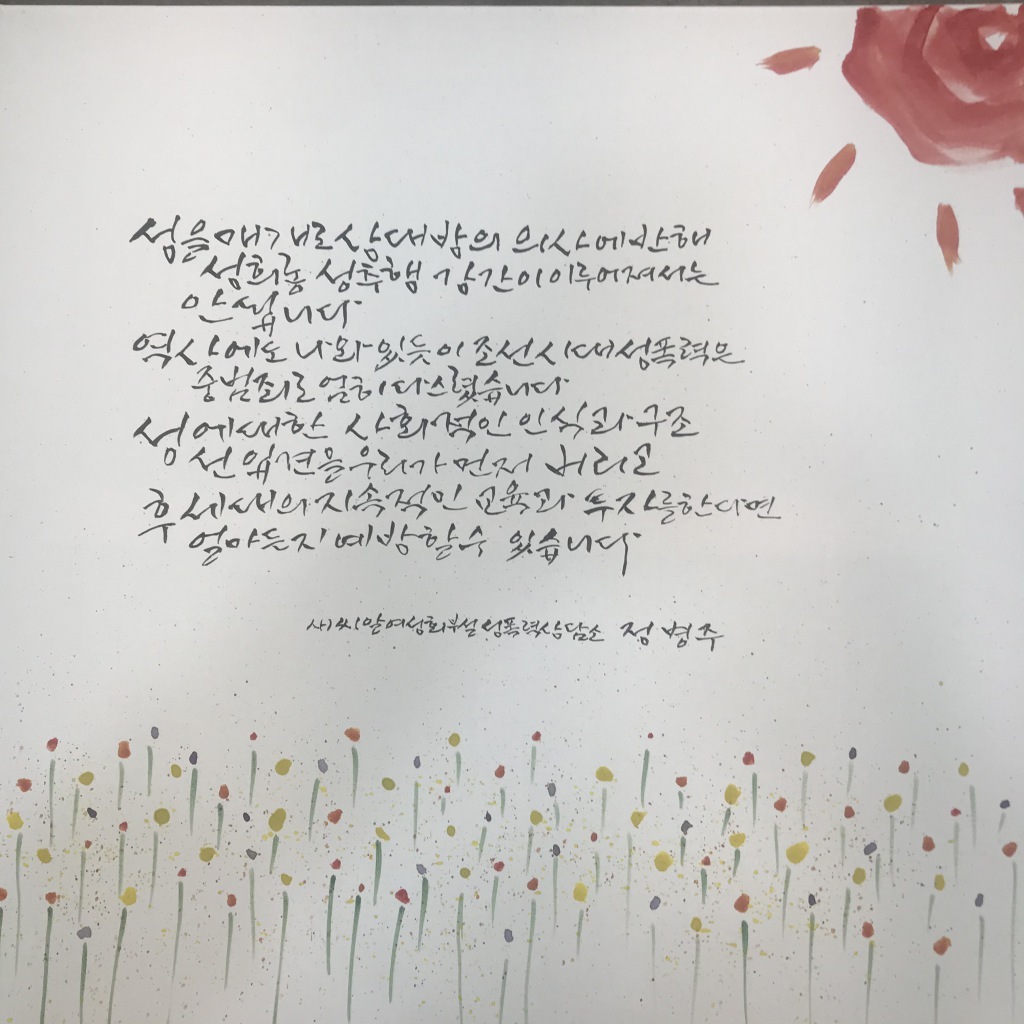 성을 매개로 상대방의 의사에 반해
성희롱 성추행 강간이 이루어져서는
안 됩니다
역사에도 나와 있듯이 조선시대 성폭력은
중범죄로 엄히 다스렸습니다
성에 대한 사회적인 인식과 구조
선입견을 우리가 먼저 버리고
후세대의 지속적인 교육과 투자를 한다면
얼마든지 예방할 수 있습니다
새씨알여성회부설 성폭력상담소 정병주